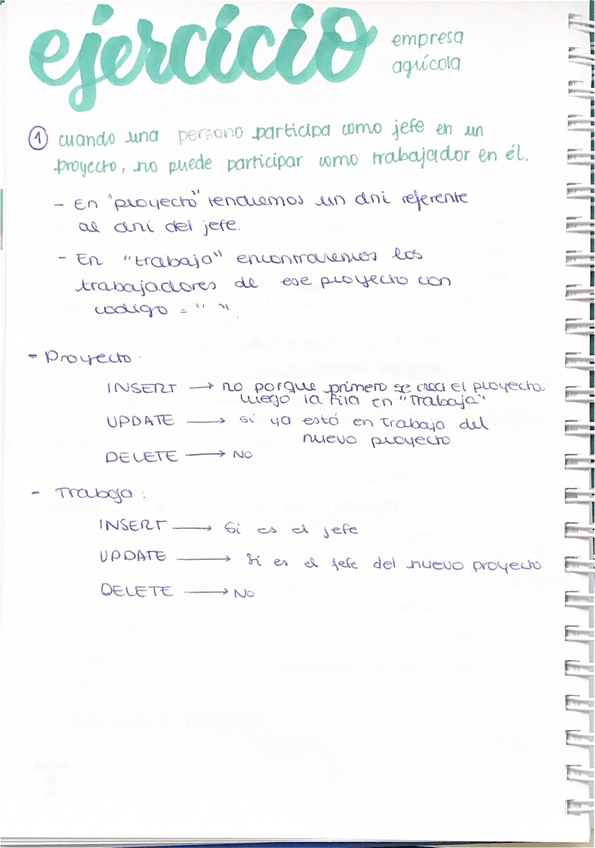 ejercicio
empresa
agrícola
① cuando una persona participa como jefe en un
proyecto, no puede participar como trabajador en él.
- En "proyecto" tendremos un dni referente
al dni del jefe.
- En "trabaja" encontraremos los
trabajadores de ese proyecto con
codigo = " "
- Proyecto.
INSERT → no porque primero se crea el proyecto,
luego la fila en "Trabaja"
UPDATE → si ya está en trabajo del
nuevo proyecto
DELETE → NO
- Trabaja:
INSERT → Si es el jefe
UPDATE → Si es el jefe del nuevo proyecto
DELETE → No